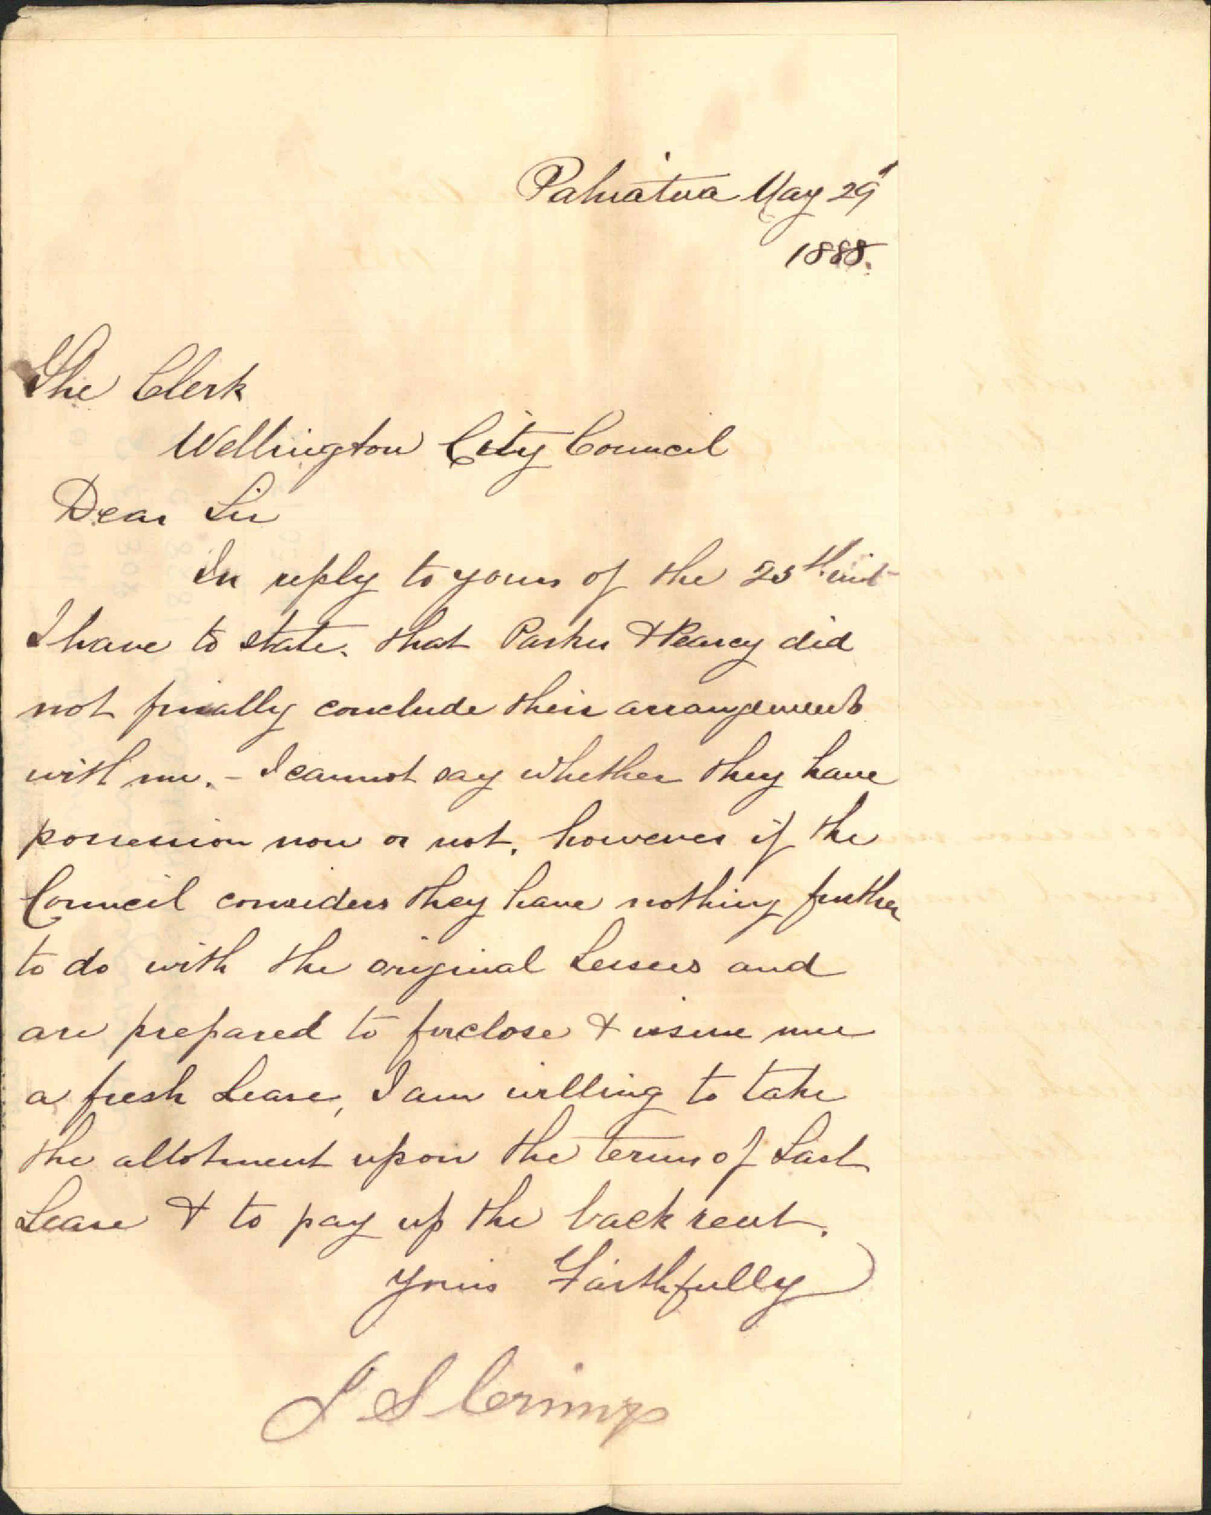 Pahiatua May 29
1888.
The Clerk
Wellington City Council
Dear Sir
In reply to yours of the 25th inst
I have to state. that Parker & Pearcy did
not finally conclude their arrangements
with me. - I cannot say whether they have
possession now or not. however if the
Council considers they have nothing further
to do with the original Lessees and
are prepared to forclose & issue me
a fresh Lease, I am willing to take
the allotment upon the terms of Last
Lease & to pay up the back rent.
Yours Faithfully
J S Crimp